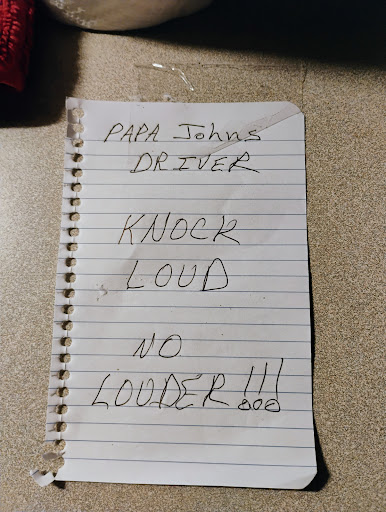 PAPA Johns
DRIVER
KNOCK
LOUD
NO
LOUDER!!!